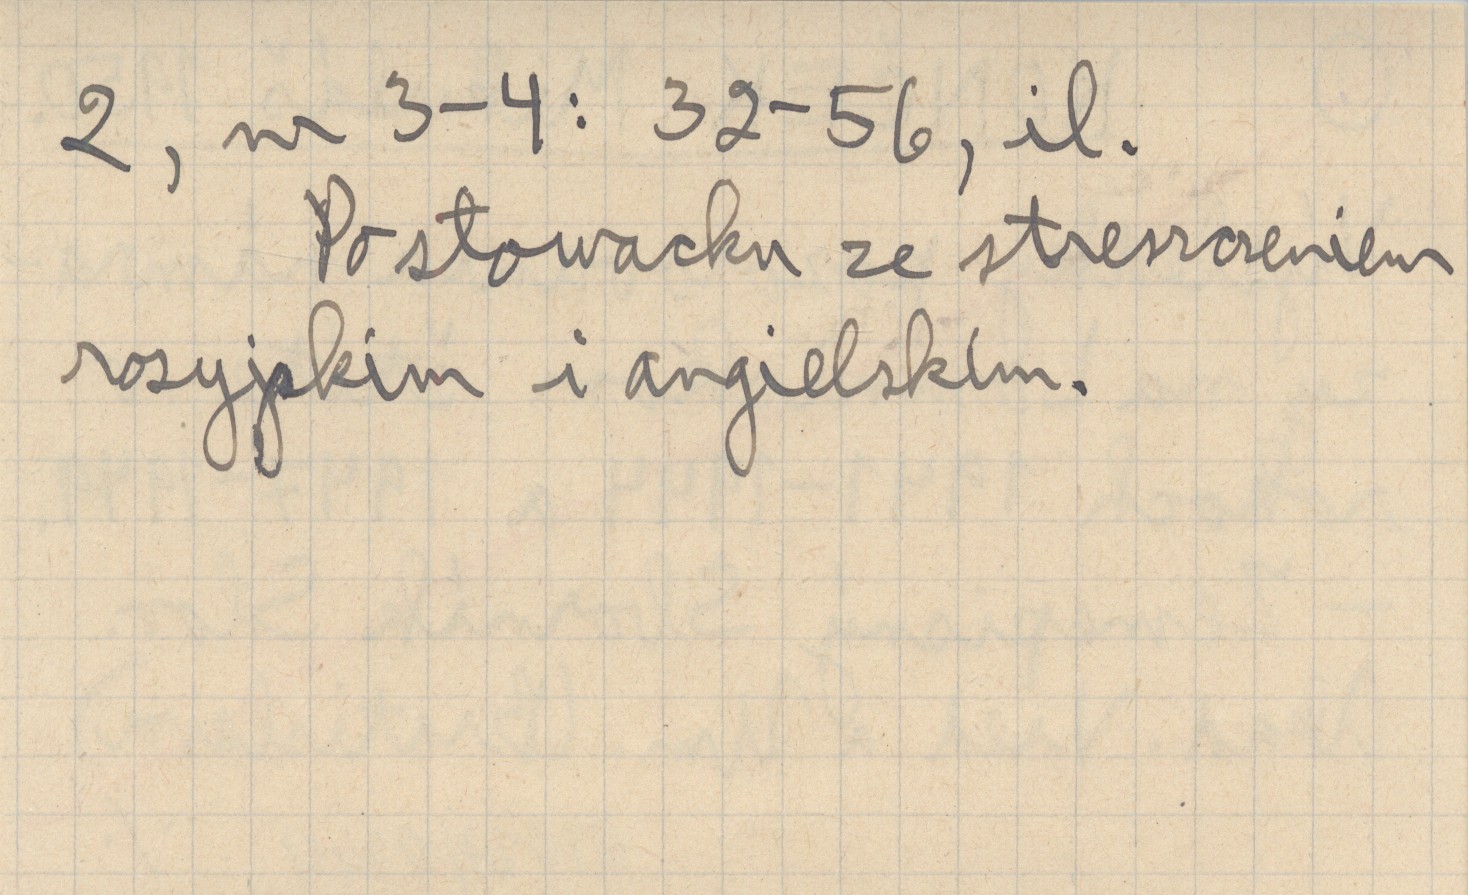 2, nr 3-4: 32-56, il.
Po słowacku ze streszczeniem
rosyjskim i angielskim.